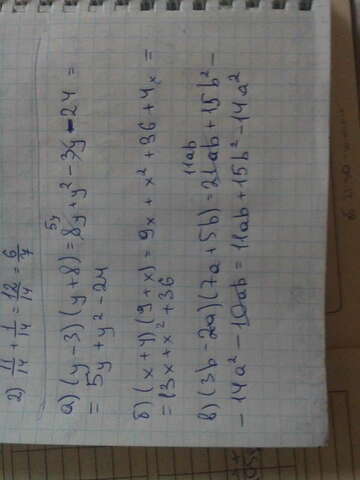 2) 11/14 + 1/14 = 12/14 = 6/7
а) (y-3)(y+8) = 8y + y² - 3y - 24 =
5y
= 5y + y² - 24
б) (x+4)(9+x) = 9x + x² + 36 + 4x =
= 13x + x² + 36
в) (3b-2a)(7a+5b) = 21ab + 15b² -
11ab
- 14a² - 10ab = 11ab + 15b² - 14a²